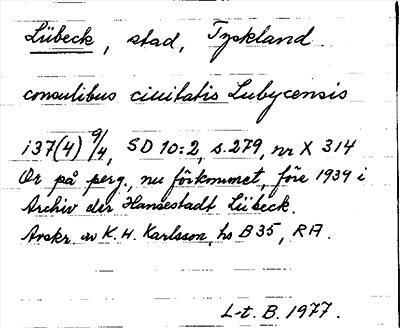 Lübeck, stad, Tyskland
consulibus ciuitatis Lubycensis
137(4) 9/4, SD 10:2, s. 279, nr X 314
Or på perg., nu förkommet, före 1934 i
Archiv der Hansestadt Lübeck.
Avskr. av K. H. Karlsson, hs B 35, RA.
L-t. B. 1977.